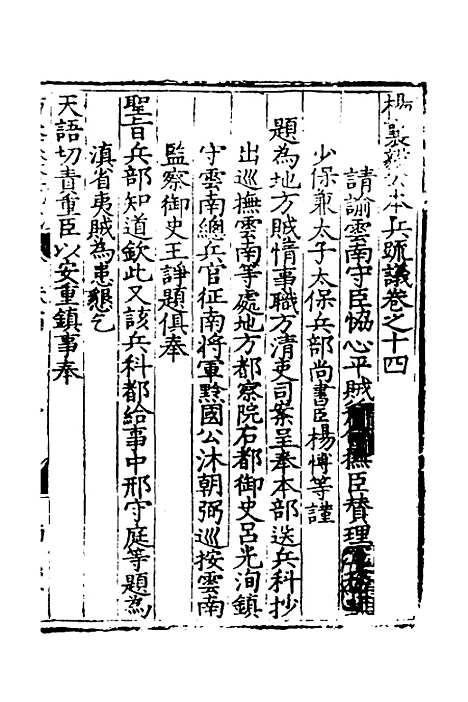 楊襄毅公本兵疏議卷之十四
請諭雲南守臣恊心平賊撫臣賛理
少保兼太子太保兵部尚書臣楊博等謹
題為地方賊情事職方清吏司案呈奉本部送兵科抄
出巡撫雲南等處地方都察院右都御史呂光洵鎮
守雲南緫兵官征南將軍黔國公沐朝弼巡按雲南
監察御史王諍題俱奉
聖旨兵部知道欽此又該兵科都給事中邢守庭等題為
滇省夷賊為患懇乞
天語切責重臣以安重鎮事奉